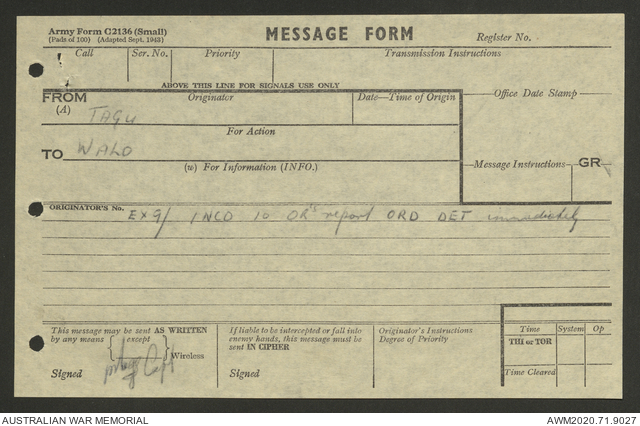 Army Form C2136 (Small)
(Pads of 100) (Adapted Sept. 1943)
MESSAGE FORM
Register No.
Call
Ser. No.
Priority
Transmission Instructions
ABOVE THIS LINE FOR SIGNALS USE ONLY
FROM
(A)
Originator
Date—Time of Origin
Office Date Stamp
TAGU
For Action
TO
WALO
(w) For Information (INFO.)
Message Instructions
GR
ORIGINATOR'S No.
EX9/ INCD 10 ORs report ORD DET immediately
This message may be sent AS WRITTEN
by any means
except
Wireless
Signed
Capt
If liable to be intercepted or fall into
enemy hands, this message must be
sent IN CIPHER
Signed
Originator's Instructions
Degree of Priority
Time
System
Op
THI or TOR
Time Cleared
AUSTRALIAN WAR MEMORIAL
AWM2020.71.9027